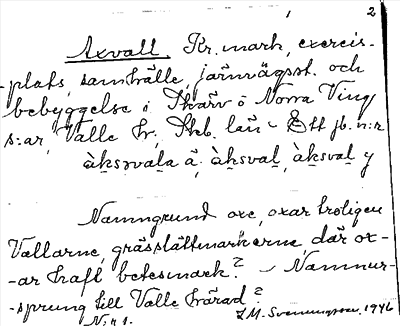 2
Axvall. Kr. mark, exercis-
-plats, samhälle, järnvägsst. och
bebyggelse i Skärv o Norra Ving
s:ar, Valle hr, Skb. län Ett jb. n:r
àk̠səvala ä, àk̠sval, àk̠sval y
Namngrund oxe, oxar troligen
Vallarne, grässlättmarkerne, där ox-
-ar haft betesmark? - Namnur-
-sprung till Valle härad?
N:r 1. 1946